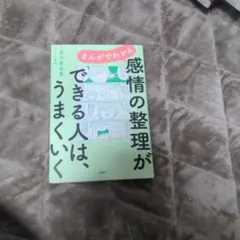 まんがでわかる
感情の整理が
できる人は、
うまくいく